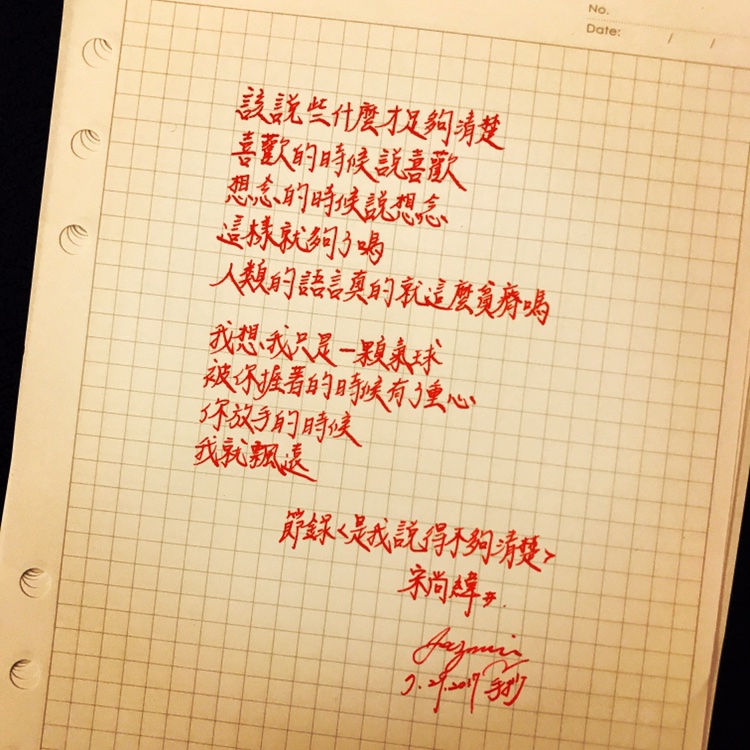 No.
Date: / /
該說些什麼才足夠清楚
喜歡的時候說喜歡
想念的時候說想念
這樣就夠了嗎
人類的語言真的就這麼貧瘠嗎
我想我只是一顆氣球
被你握著的時候有了重心
你放手的時候
我就飄遠
節錄<是我說得不夠清楚>
宋尚緯
7.29.2017 手抄